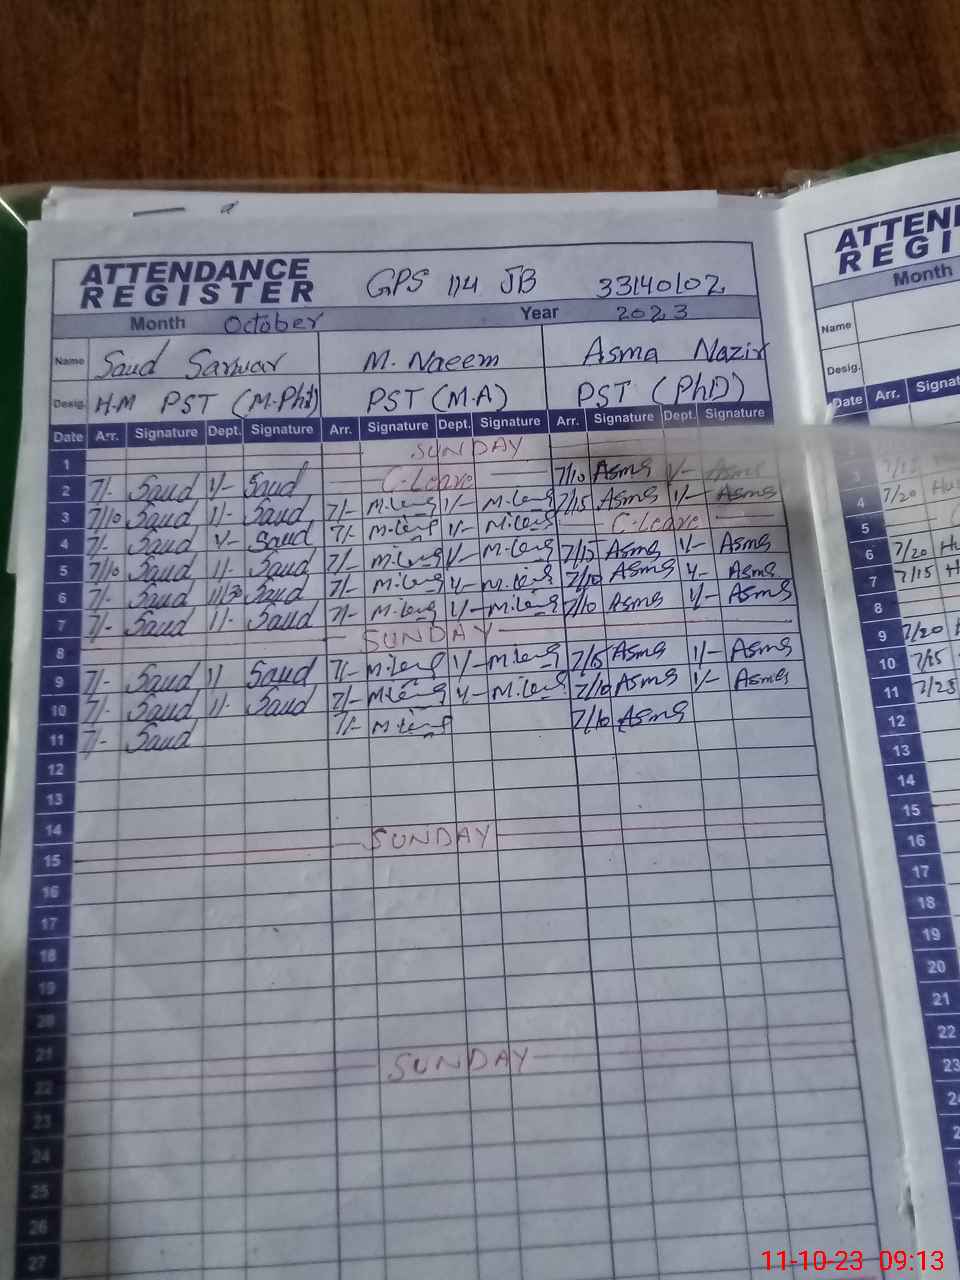 ATTENDANCE
REGISTER
GPS 114 JB 33140102
Month October Year 2023
Name Saud Sarwar M. Naeem Asma Nazir
Desig. H.M PST (M.Phil) PST (M.A) PST (PhD)
Date Arr. Signature Dept. Signature Arr. Signature Dept. Signature Arr. Signature Dept. Signature
1 SUNDAY
2 7/- Saud 1/- Saud C-Leave 7/10 Asma 1/- Asma
3 7/10 Saud 1/- Saud 7/- 1/- 7/15 Asma 1/- Asma
4 7/- Saud 1/- Saud 7/- 1/- C-Leave
5 7/10 Saud 1/- Saud 7/- 1/- 7/15 Asma 1/- Asma
6 7/- Saud 11/30 Saud 7/- 1/- 7/10 Asma 1/- Asma
7 7/- Saud 1/- Saud 7/- 1/- 7/10 Asma 1/- Asma
8 SUNDAY
9 7/- Saud 1/ Saud 7/- 1/- 7/15 Asma 1/- Asma
10 7/- Saud 1/- Saud 7/- 1/- 7/10 Asma 1/- Asma
11 7/- Saud 7/- 7/10 Asma
12
13
14
15 SUNDAY
16
17
18
19
20
21
22 SUNDAY
23
24
25
26
27
ATTEN
REGI
Month
Name
Desig.
Date Arr. Signat
3
4 7/20
5
6 7/20
7 7/15
8
9 7/20
10 7/25
11 7/25
12
13
14
15
16
17
18
19
20
21
22
23
11-10-23 09:13